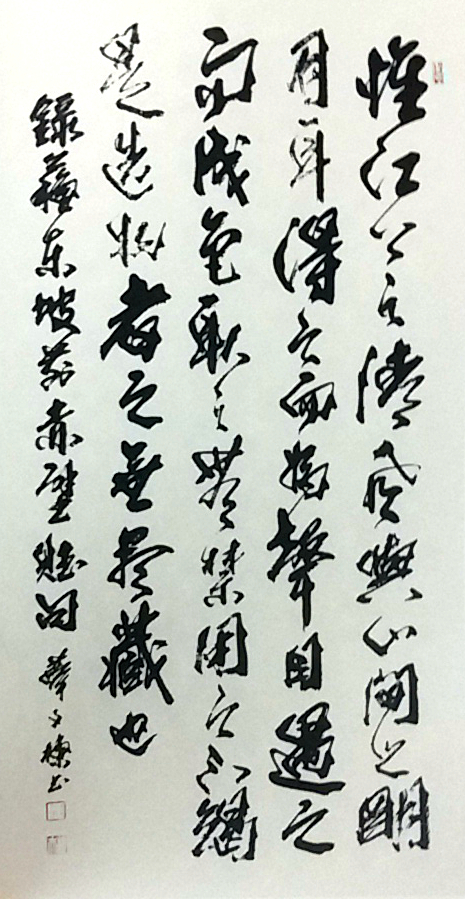 惟江上之清風與山間之明
月耳得之而為聲目遇之
而成色取之無禁用之不竭
是造物者之無盡藏也
錄蘇東坡前赤壁賦句